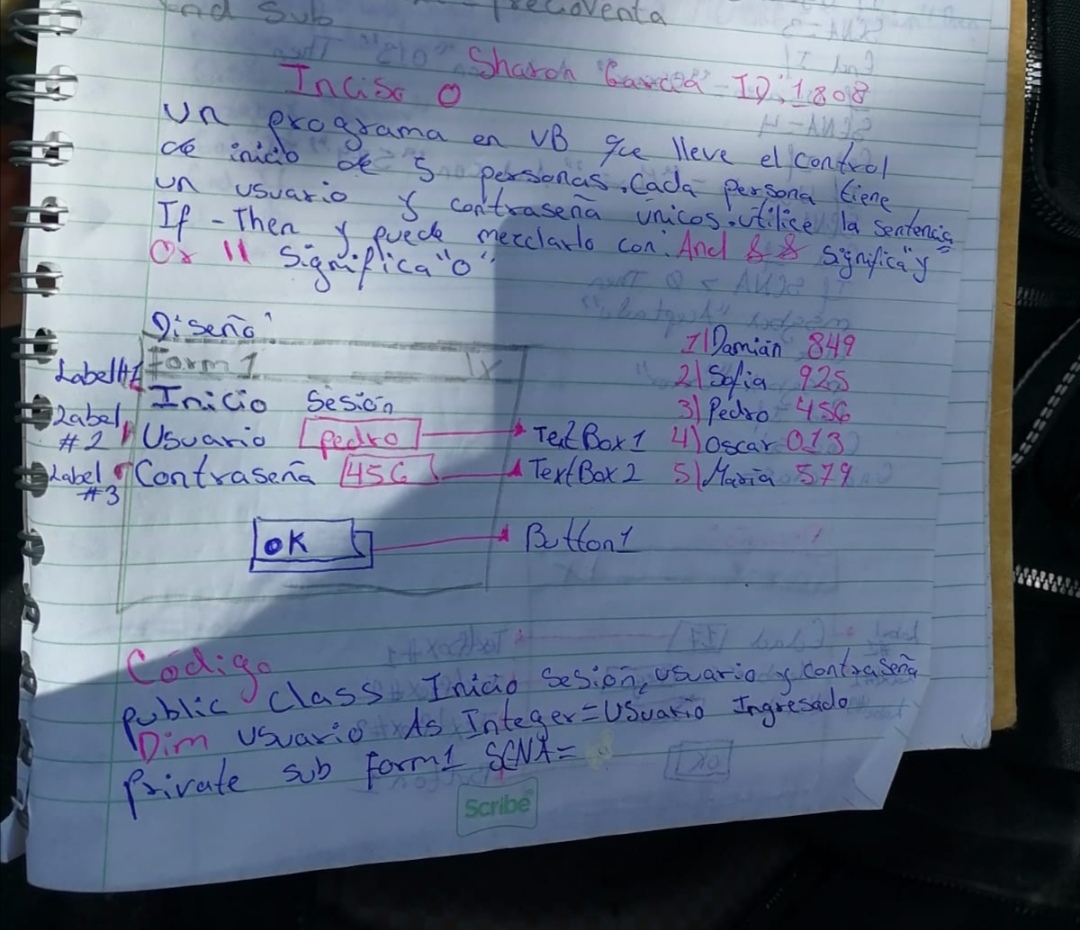 End Sub
precioventa
Sharon Garcia - ID: 1808
Inciso O
un programa en VB que lleve el control
de inicio de 5 personas. Cada persona tiene
un usuario y contraseña únicos. utilice la sentencia
If - Then y puede mezclarlo con: And && significa "y"
Or || significa "o"
Diseño
Form 1 X
Label #1 Inicio Sesión
Label #2 Usuario pedro TextBox1
Label #3 Contraseña 456 TextBox2
OK Button1
1) Damián 849
2) Sofia 925
3) Pedro 456
4) Oscar 013
5) Maria 579
Codigo
public class Inicio Sesión, usuario y contraseña
Dim usuario As Integer = Usuario Ingresado
private sub form1 SCNA=
Scribe